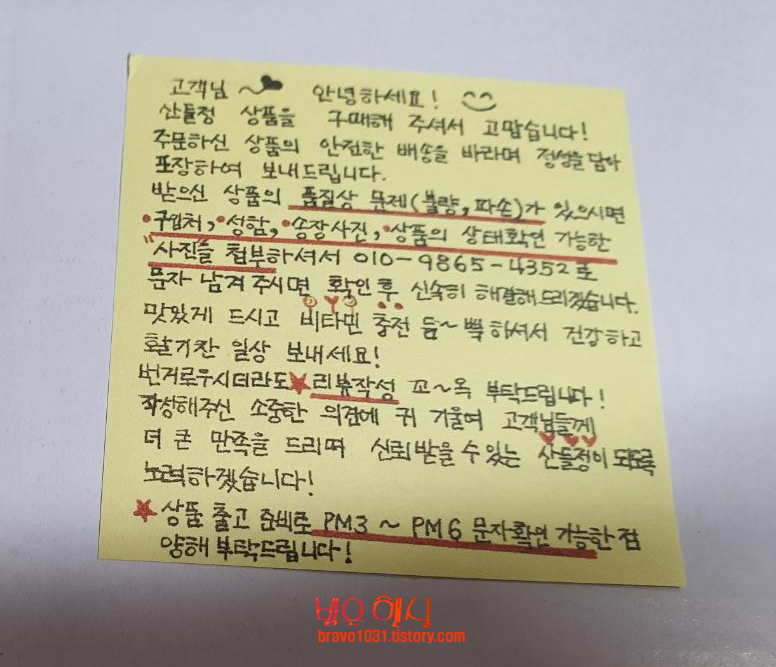 고객님~ 안녕하세요!
산들정 상품을 구매해 주셔서 고맙습니다!
주문하신 상품의 안전한 배송을 바라며 정성을 담아
포장하여 보내드립니다.
받으신 상품의 품질상 문제(불량,파손)가 있으시면
•구입처, •성함, •송장사진, •상품의 상태확인 가능한
"사진을 첨부하셔서 010-9865-4352로
문자 남겨주시면 확인 후 신속히 해결해드리겠습니다.
맛있게 드시고 비타민 충전 듬~뿍하셔서 건강하고
활기찬 일상 보내세요!
번거로우시더라도★리뷰작성 꼬~옥 부탁드립니다!
작성해주신 소중한 의견에 귀 기울여 고객님들께
더 큰 만족을 드리며 신뢰받을 수 있는 산들정이 되도록
노력하겠습니다!
★ 상품 출고 준비로 PM3 ~ PM6 문자확인 가능한 점
양해 부탁드립니다!
bravo1031.tistory.com